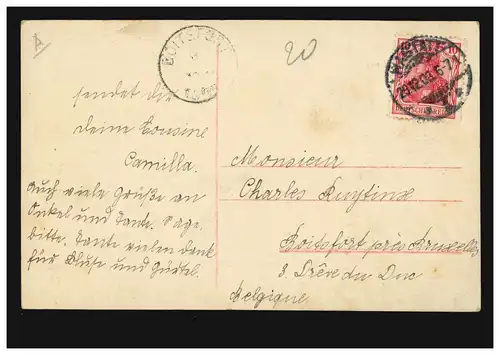 A
20
BOITSFORT
29.12.03. 6-7
sendet dir
deine Cousine
Camilla.
Auch viele Grüße an
Onkel und Tante. Sage
bitte. Tante vielen dank
für Bluse und Gürtel.
Monsieur
Charles
Boitsfort près Bruxelles
3. Drève du Duc
Belgique